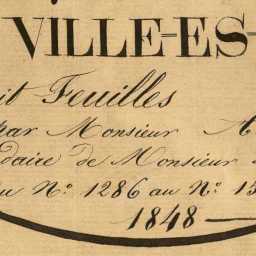 VILLE-ES-
it Feuilles
par Monsieur A
daire de Monsieur
u No. 1286 au No. 15
1848